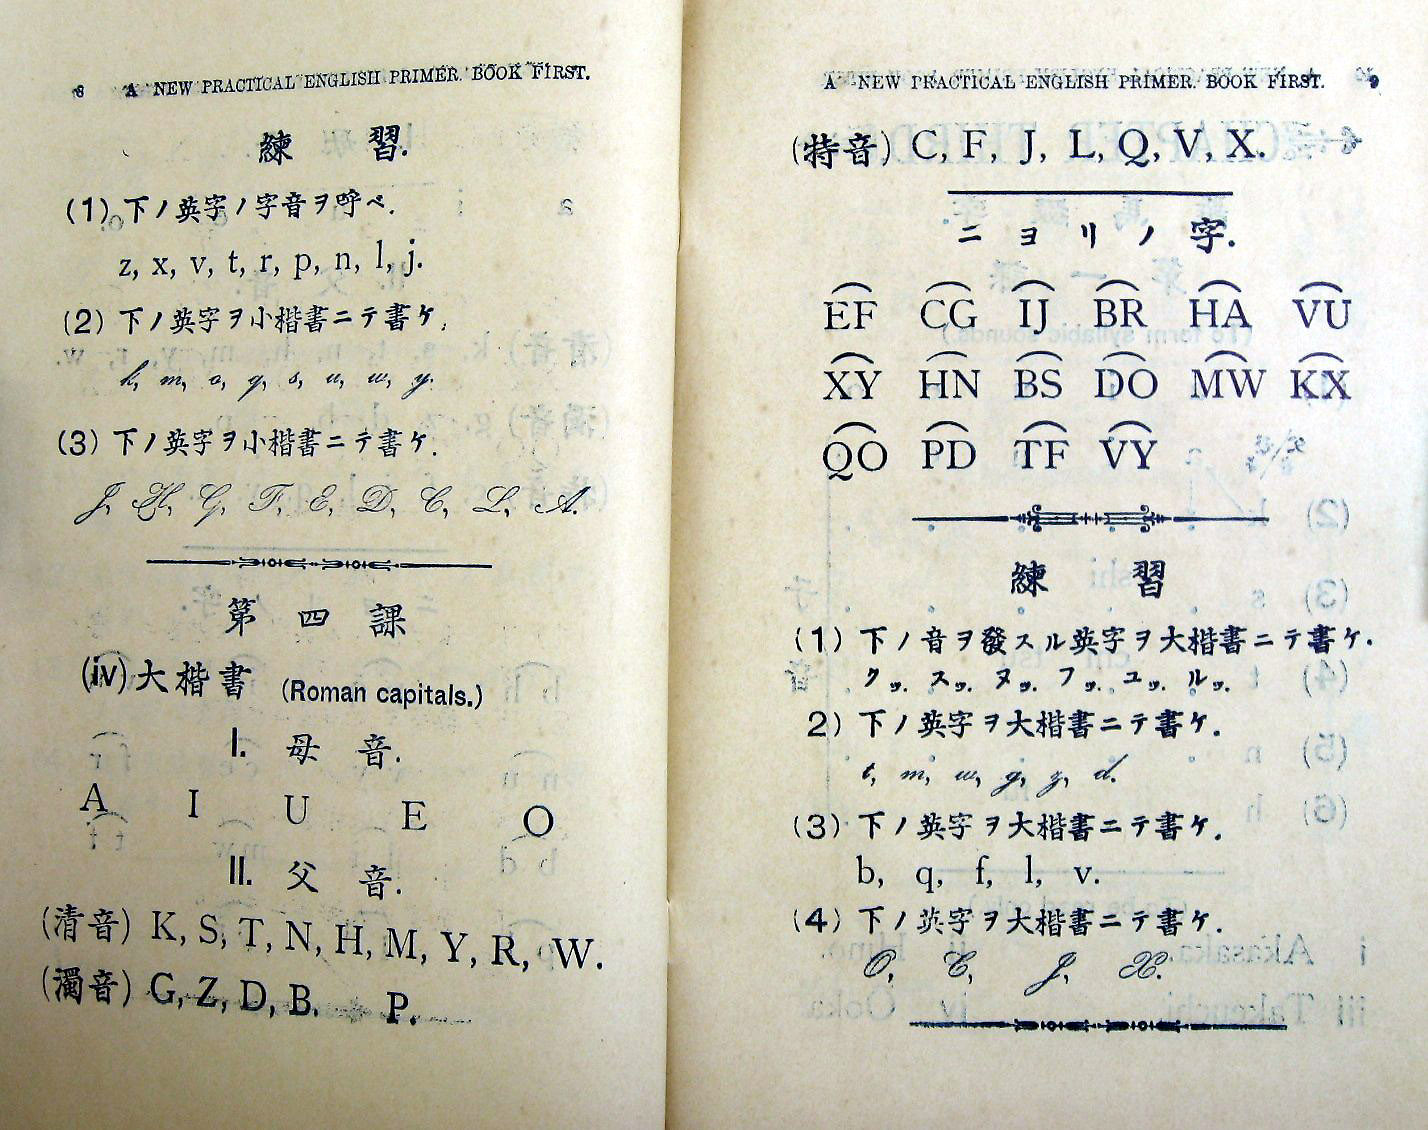 8 A NEW PRACTICAL ENGLISH PRIMER. BOOK FIRST.
練習.
(1) 下ノ英字ノ字音ヲ呼ベ.
z, x, v, t, r, p, n, l, j.
(2) 下ノ英字ヲ小楷書ニテ書ケ.
k, m, o, q, s, u, w, y.
(3) 下ノ英字ヲ小楷書ニテ書ケ.
J, H, G, F, E, D, C, L, A.
第四課
(iv) 大楷書 (Roman capitals.)
I. 母音.
A I U E O
II. 父音.
(清音) K, S, T, N, H, M, Y, R, W.
(濁音) G, Z, D, B. P.
A NEW PRACTICAL ENGLISH PRIMER. BOOK FIRST. 9
(特音) C, F, J, L, Q, V, X.
ニヨリノ字.
EF CG IJ BR HA VU
XY HN BS DO MW KX
QO PD TF VY
練習
(1) 下ノ音ヲ發スル英字ヲ大楷書ニテ書ケ.
クッ. スッ. ヌッ. フッ. ユッ. ルッ.
2) 下ノ英字ヲ大楷書ニテ書ケ.
t, m, w, g, z, d.
(3) 下ノ英字ヲ大楷書ニテ書ケ.
b, q, f, l, v.
(4) 下ノ英字ヲ大楷書ニテ書ケ.
O, C, J, X.